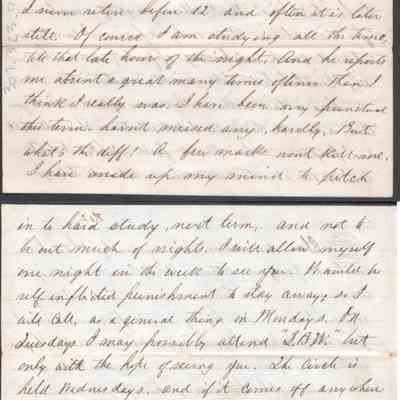 I never retire before 12 and often it is later
still. Of course I am studying all the time,
till that late hour of the night. And he reports
me absent a great many times oftener than I
think I really was. I have been very punctual
this term. havn't missed any, hardly. But
what's the diff! A few marks wont kill me.
I have made up my mind to pitch
in to hard study, next term, and not to
be out much of nights. I will allow myself
one night in the week to see you. Would be
self inflicted punishment to stay away, so I
will call, as a general thing on Mondays. On
Tuesdays I may possibly attend "I.B.W." but
only with the hope of seeing you. The Circle is
held Wednesdays. and if it comes off anywhere